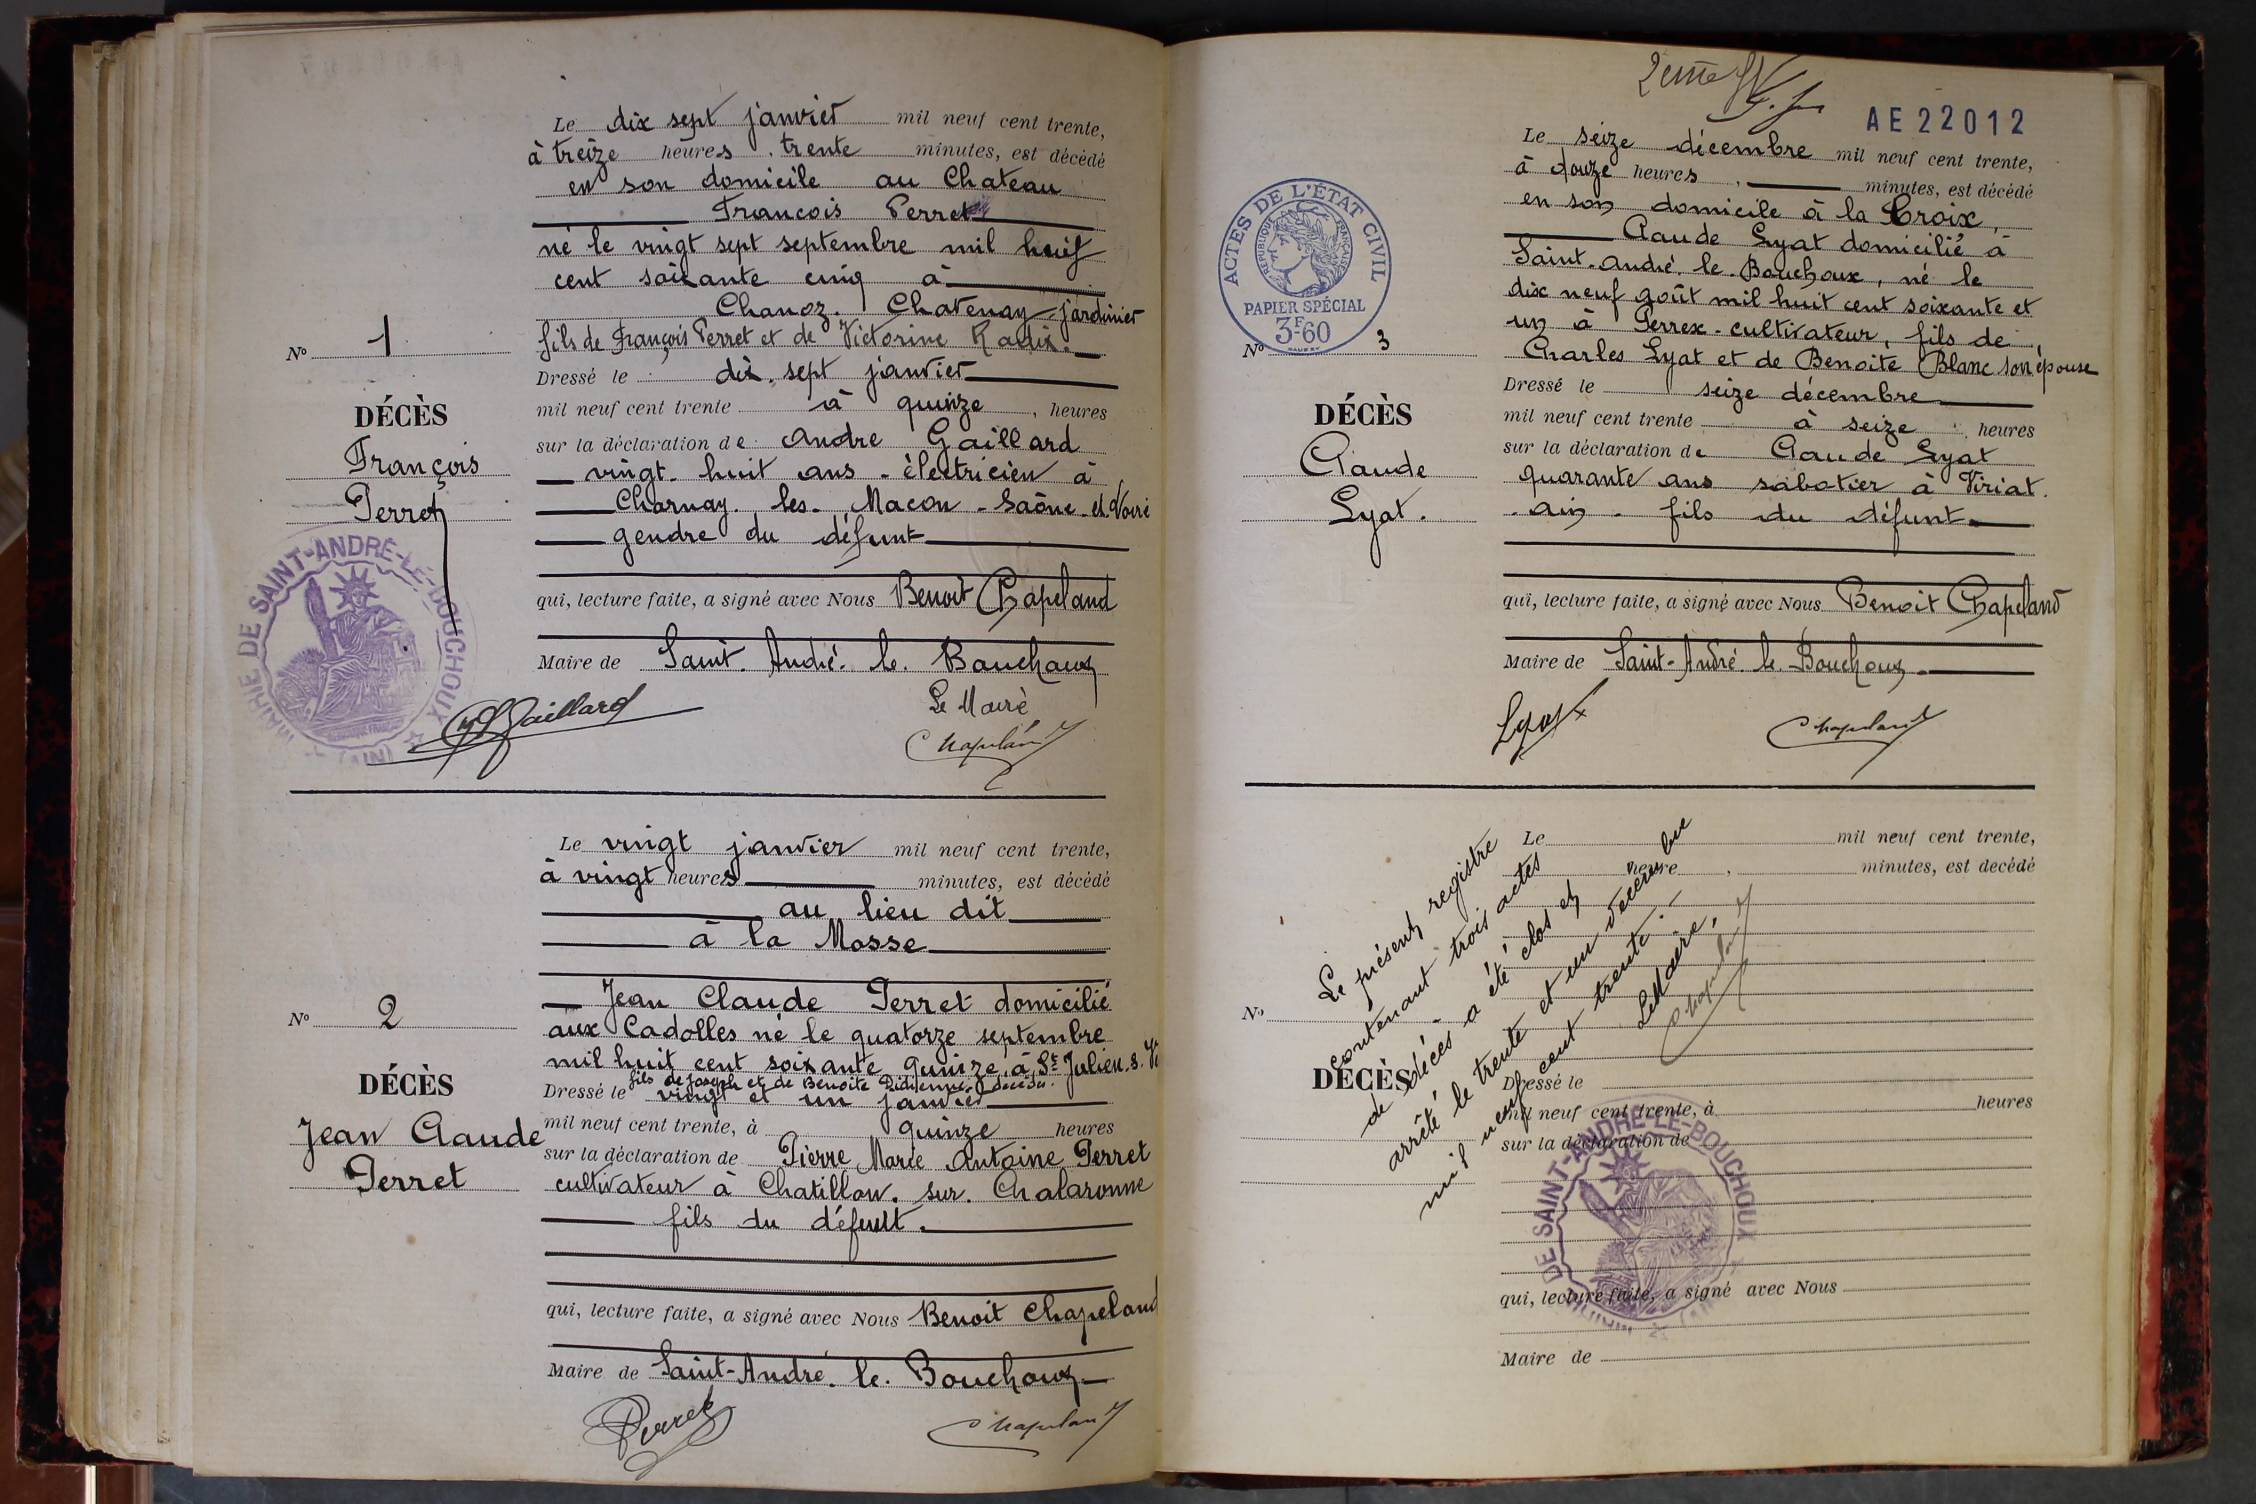 Le dix sept janvier mil neuf cent trente,
à treize heures . trente minutes, est décédé
en son domicile au Chateau
François Perret
né le vingt sept septembre mil huit
cent soixante cinq à
Chanoz. Chatenay - jardinier
fils de François Perret et de Victorine Radix.
Dressé le dix. sept janvier
mil neuf cent trente à quinze , heures
sur la déclaration de André Gaillard
vingt. huit ans - électricien à
Charnay. les. Macon - Saône. et. Loire
gendre du défunt
qui, lecture faite, a signé avec Nous Benoit Chapeland
Maire de Saint. André. le. Bouchoux
Le Maire
Gaillard
Chapeland
No 1
DÉCÈS
François
Perret
MAIRIE DE SAINT-ANDRÉ-LE-BOUCHOUX
(AIN)
Le vingt janvier mil neuf cent trente,
à vingt heures minutes, est décédé
au lieu dit
à la Mosse
Jean Claude Perret domicilié
aux Cadolles né le quatorze septembre
mil huit cent soixante quinze, à St Julien. s.
fils de Joseph et de Benoite
Dressé le vingt et un janvier
mil neuf cent trente, à quinze heures
sur la déclaration de Pierre Marie Antoine Perret
cultivateur à Chatillon. sur. Chalaronne
fils du défunt.
qui, lecture faite, a signé avec Nous Benoit Chapeland
Maire de Saint-André. le. Bouchoux
Perret
Chapeland
No 2
DÉCÈS
Jean Claude
Perret
2eme
AE22012
ACTES DE L'ÉTAT CIVIL
RÉPUBLIQUE FRANÇAISE
PAPIER SPÉCIAL
3F60
Le seize décembre mil neuf cent trente,
à douze heures , minutes, est décédé
en son domicile à la Croix,
Claude Lyat domicilié à
Saint-André. le. Bouchoux, né le
dix neuf août mil huit cent soixante et
un à Perrex - cultivateur, fils de
Charles Lyat et de Benoite Blanc son épouse
Dressé le seize décembre
mil neuf cent trente à seize heures
sur la déclaration de Claude Lyat
quarante ans sabotier à Viriat.
- ain - fils du défunt
qui, lecture faite, a signé avec Nous Benoit Chapeland
Maire de Saint-André. le. Bouchoux
Lyat
Chapeland
No 3
DÉCÈS
Claude
Lyat.
Le mil neuf cent trente,
heure , minutes, est decédé
No
DÉCÈS
Dressé le
mil neuf cent trente, à heures
sur la déclaration de
qui, lecture faite, a signé avec Nous
Maire de
Le présent registre
contenant trois actes
de décès a été clos et
arrêté le trente et un décembre
mil neuf cent trente.
Le Maire,
Chapeland
MAIRIE DE SAINT-ANDRÉ-LE-BOUCHOUX